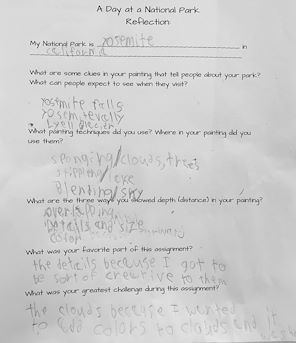 A Day at a National Park
Reflection:
My National Park is yosemite in
california
What are some clues in your painting that tell people about your park?
What can people expect to see when they visit?
yosmite falls
yosemitevally
Lyell glacier
What painting techniques did you use? Where in your painting did you
use them?
sponging/clouds, trees
stippling/
Blending/sky
What are the three ways you showed depth (distance) in your painting?
overlaping
Details and size
color
What was your favorite part of this assignment?
the details because I got to
be sort of creative to them
What was your greatest challenge during this assignment?
the clouds because I wanted
to add colors to clouds and it